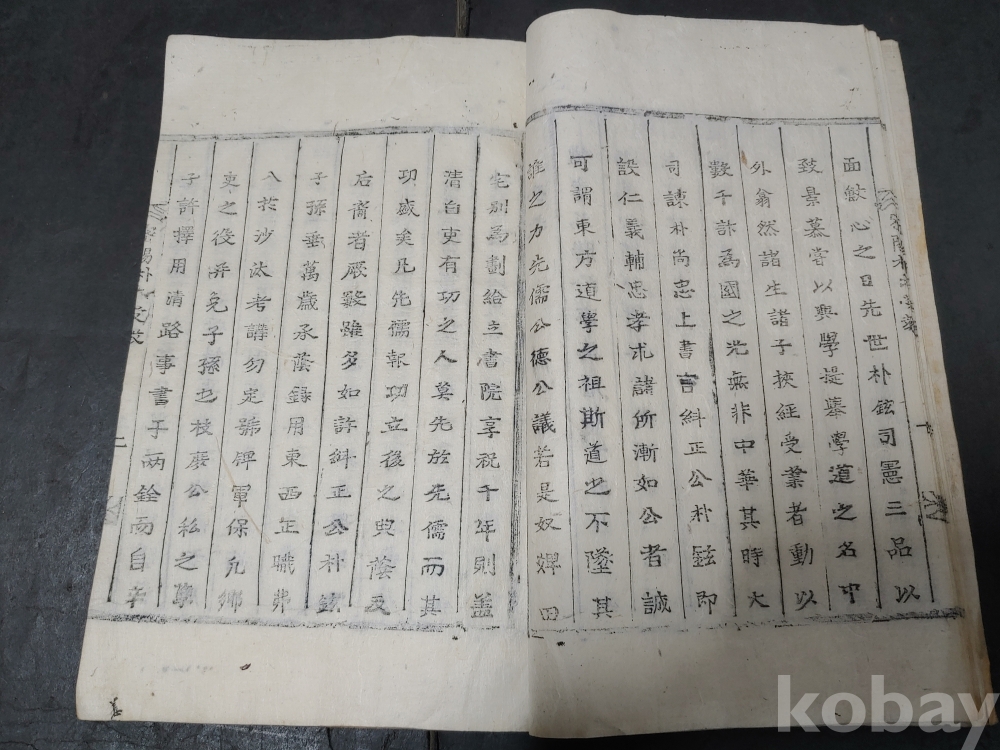 面敏心之日先世朴鉉司憲三品以
致景慕嘗以興學提舉學道之名中
外翕然諸生諸子挾經受業者動以
數千計為國之光無非中華其時大
司諫朴尚忠上書言糾正公朴鉉即
設仁義輔忠孝朮諸所漸如公者誠
可謂東方道學之祖斯道之不墜其
誰之力先儒公德公議若是奴婢田
宅別為劃給立書院享祝千年則蓋
清白吏有功之人莫先於先儒而其
功盛矣凡先儒報功立後之典蔭及
后裔者厥數雖多如許糾正公朴鉉
子孫垂萬歲承蔭錄用東西正職弗
入於沙汰考講勿定號牌軍保凡鄉
吏之役并免子孫也校廢公私之
子許擇用清路事書于兩銓而自
二
kobay